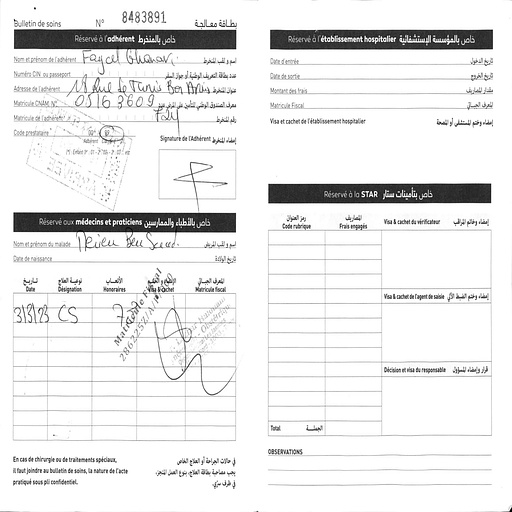 Bulletin de soins N° 8483891 بطاقة معالجة
Réservé à l'adhérent خاص بالمنخرط
Nom et prénom de l'adhérent Fayçal اسم و لقب المنخرط
Numéro CIN ou passeport عدد بطاقة التعريف الوطنية أو جواز السفر
Adresse de l'adhérent 18 Rue de Tunis Ben Arous عنوان المنخرط
Matricule CNAM N° 05163609
Matricule de l'adhérent رقم المنخرط
Code prestataire
Signature de l'Adhérent إمضاء المنخرط
Réservé aux médecins et praticiens خاص بالأطباء والممارسين
Nom et prénom du malade Ben اسم و لقب المريض
Date de naissance تاريخ الولادة
تاريخ نوعية العلاج الأتعاب الإمضاء و الختم المعرف الجبائي
Date Désignation Honoraires Visa & cachet Matricule fiscal
3/3/23 CS
Matricule Fiscal
En cas de chirurgie ou de traitements spéciaux,
il faut joindre au bulletin de soins, la nature de l'acte
pratiqué sous pli confidentiel.
في حالات الجراحة أو العلاج الخاص
يجب مصاحبة بطاقة العلاج، بنوع العمل المنجز،
في ظرف سري.
Réservé à l'établissement hospitalier خاص بالمؤسسة الإستشفائية
Date d'entrée تاريخ الدخول
Date de sortie تاريخ الخروج
Montant des frais مقدار المصاريف
Matricule Fiscal المعرف الجبائي
Visa et cachet de l'établissement hospitalier إمضاء وختم المستشفى أو المصحة
Réservé à la STAR خاص بتأمينات ستار
رمز العنوان المصاريف
Code rubrique Frais engagés
Visa & cachet du vérificateur إمضاء وخاتم المراقب
Visa & cachet de l'agent de saisie إمضاء وختم الضبط الآلي
Décision et visa du responsable قرار وإمضاء المسؤول
Total الجملة
OBSERVATIONS